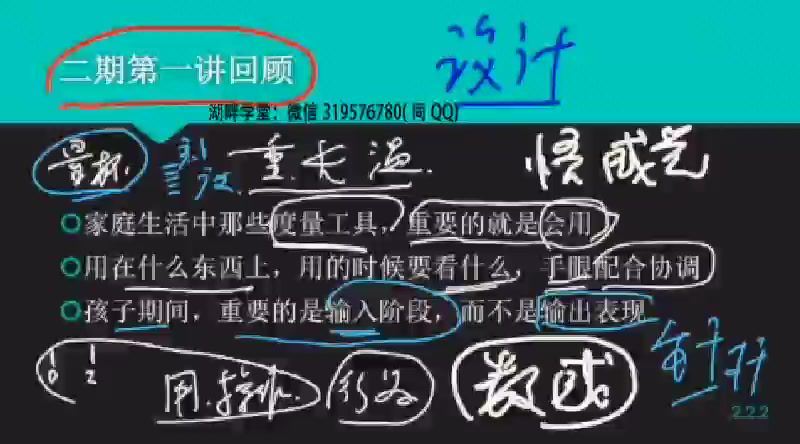 二期第一讲回顾
设计
湖畔学堂：微信 319576780( 同 QQ)
量杯
重.长.温.
家庭生活中那些度量工具，重要的就是会用
用在什么东西上，用的时候要看什么，手眼配合协调
孩子期间，重要的是输入阶段，而不是输出表现
10 12
用.操作.
数感
222